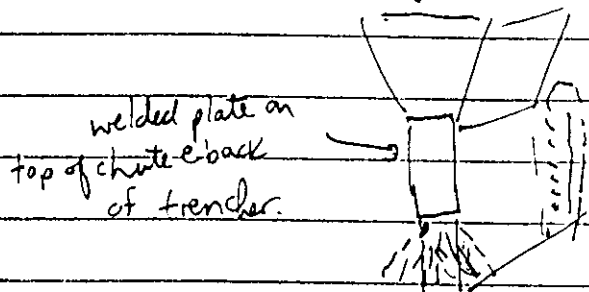 welded plate on
top of chute @ back
of trencher.